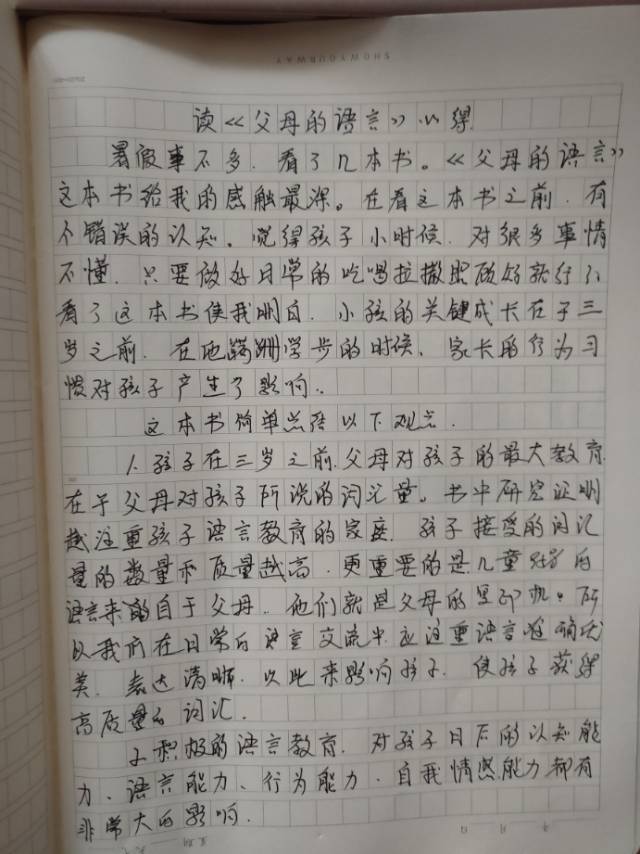 SHOWYOURWAY
读《父母的语言》心得
暑假事不多，看了几本书。《父母的语言》
这本书给我的感触最深。在看这本书之前，有
个错误的认知。觉得孩子小时候，对很多事情
不懂，只要做好日常的吃喝拉撒照顾好就行了
看了这本书使我明白，小孩的关键成长在于三
岁之前，在他蹒跚学步的时候，家长的行为习
惯对孩子产生了影响。
这本书简单总结以下观点。
1、孩子在三岁之前，父母对孩子的最大教育
在于父母对孩子所说的词汇量。书中研究证明
越注重孩子语言教育的家庭，孩子接受的词汇
量的数量和质量越高，更重要的是儿童的
语言来的自于父母，他们就是父母的复印机。所
以我们在日常的语言交流中，应注重语言准确优
美，表达清晰，以此来影响孩子，使孩子获得
高质量的词汇。
2、积极的语言教育，对孩子日后的认知能
力、语言能力、行为能力、自我情感能力都有
非常大的影响。
年 月 日